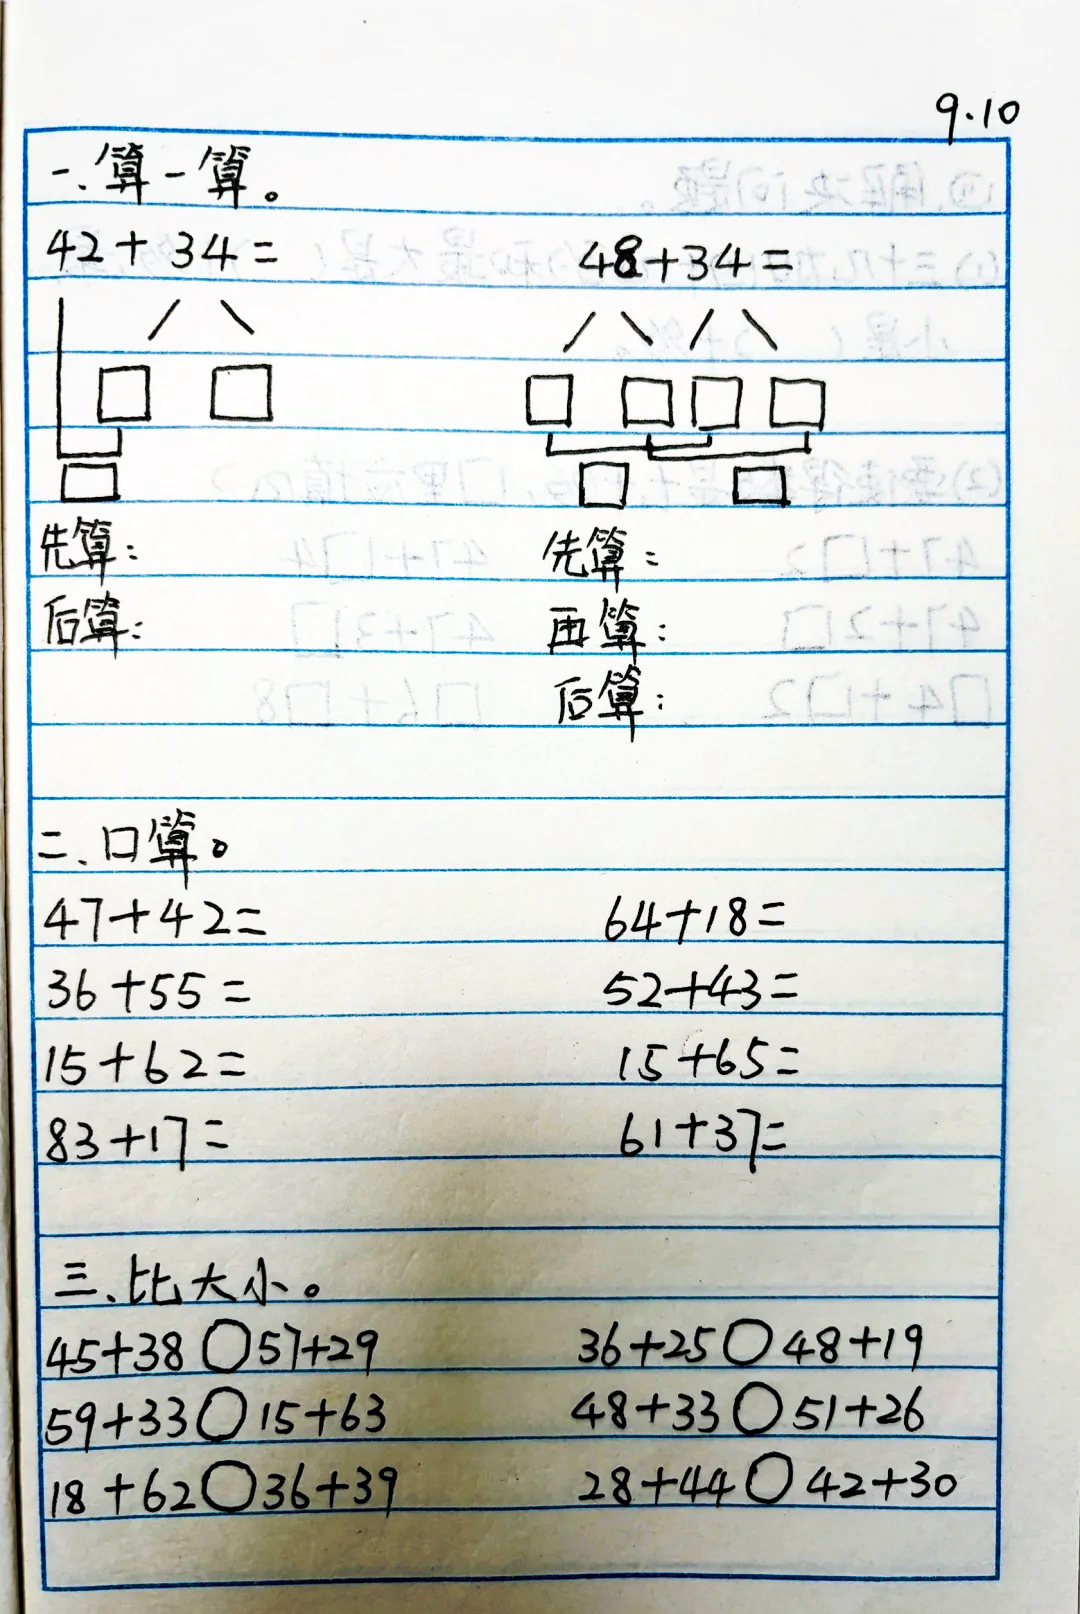 9.10
一.算一算。
42+34= 48+34=
先算: 先算:
后算: 再算:
后算:
二.口算。
47+42= 64+18=
36+55= 52+43=
15+62= 15+65=
83+17= 61+37=
三.比大小。
45+38○57+29 36+25○48+19
59+33○15+63 48+33○51+26
18+62○36+39 28+44○42+30